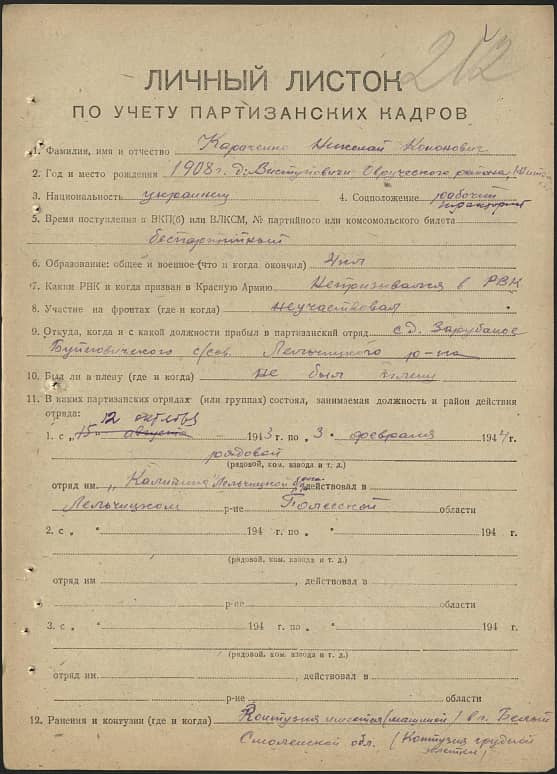 212
ЛИЧНЫЙ ЛИСТОК
ПО УЧЕТУ ПАРТИЗАНСКИХ КАДРОВ
1. Фамилия, имя и отчество Караченко Николай Кононович
2. Год и место рождения 1908 г. д. Выступовичи Овручского района,
3. Национальность украинец 4. Соцположение рабочий
5. Время поступления в ВКП(б) или ВЛКСМ, № партийного или комсомольского билета
беспартийный
6. Образование: общее и военное (что и когда окончил) 4 кл
7. Каким РВК и когда призван в Красную Армию Непризывался в РВК
8. Участие на фронтах (где и когда) неучаствовал
9. Откуда, когда и с какой должности прибыл в партизанский отряд с д. Зарубаное
с/сов. Лельчицкого р-на
10. Был ли в плену (где и когда) не был в плену
11. В каких партизанских отрядах (или группах) состоял, занимаемая должность и район действия
отряда: 12 октября
1. с „15“ августа 1943 г. по „3“ февраля 1944 г.
рядовой
(рядовой, ком. взвода и т. д.)
отряд им „Калинина" Лельчицкой действовал в
Лельчицком р-не Полесской области
2. с „ “ 194 г. по „ “ 194 г.
(рядовой, ком. взвода и т. д.)
отряд им , действовал в
р-не области
3. с „ “ 194 г. по „ “ 194 г.
(рядовой, ком. взвода и т. д.)
отряд им. , действовал в
р-не области
12. Ранения и контузии (где и когда) Контузия имеется (машиной) в г. Белый
Смоленской обл. (Контузия грудной клетки)